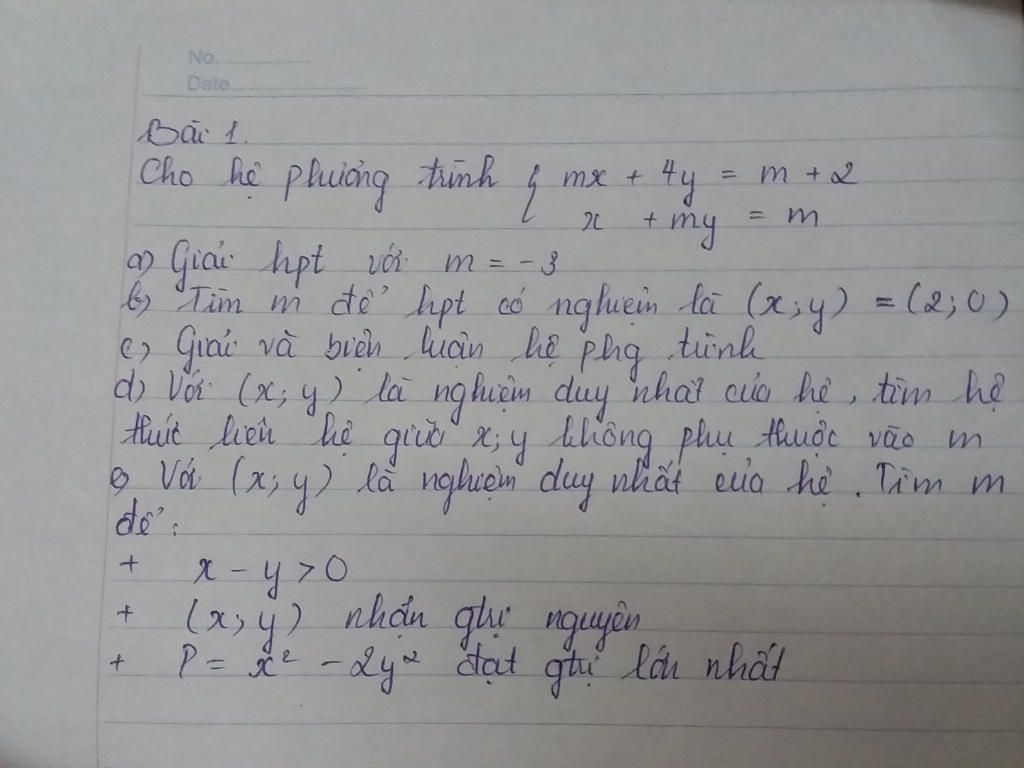 No. ....................
Date................................
Bài 1.
Cho hệ phương trình { mx + 4y = m + 2
x + my = m
a) Giải hpt với m = -3
b) Tìm m để hpt có nghiệm là (x; y) = (2; 0)
c) Giải và biện luận hệ phg trình
d) Với (x; y) là nghiệm duy nhất của hệ, tìm hệ
thức liên hệ giữa x; y không phụ thuộc vào m
e) Với (x; y) là nghiệm duy nhất của hệ. Tìm m
để:
+ x - y > 0
+ (x; y) nhận gtrị nguyên
+ P = x² - 2y² đạt gtrị lớn nhất